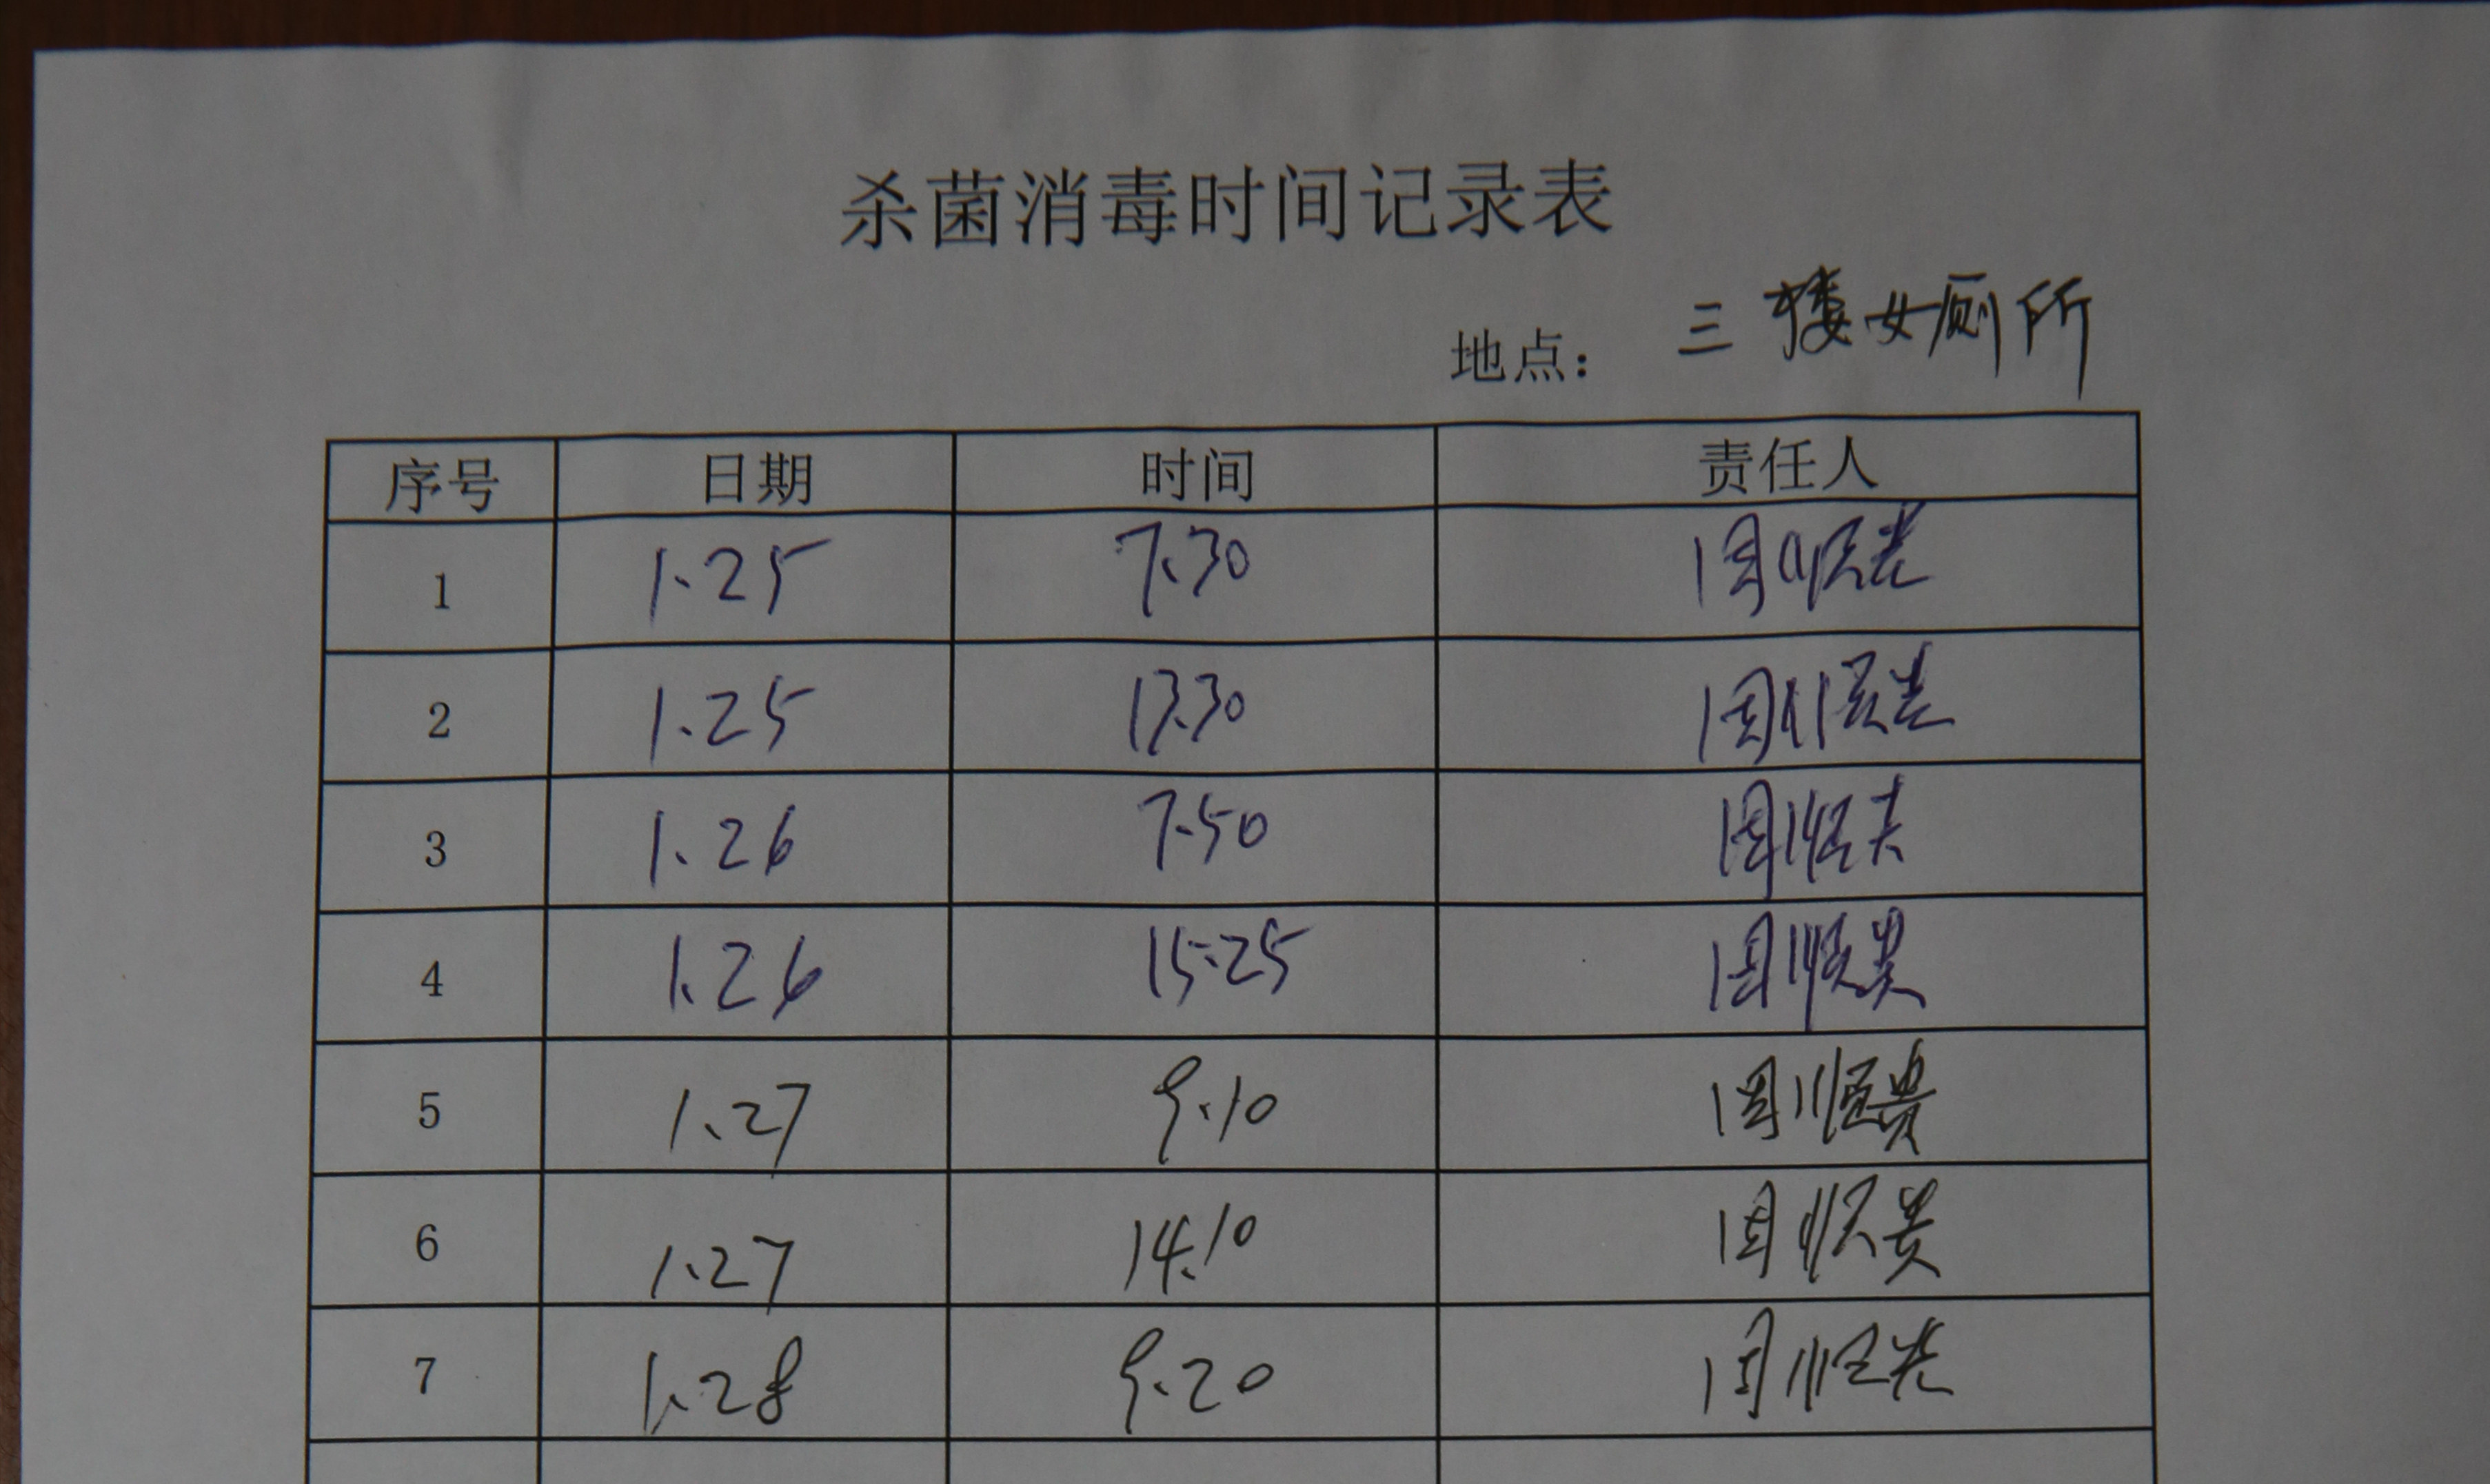 杀菌消毒时间记录表
地点： 三楼女厕所
序号 日期 时间 责任人
1 1.25 7.30 周顺贵
2 1.25 13.30 周顺贵
3 1.26 7.50 周顺贵
4 1.26 15.25 周顺贵
5 1.27 9.10 周顺贵
6 1.27 14.10 周顺贵
7 1.28 9.20 周顺贵